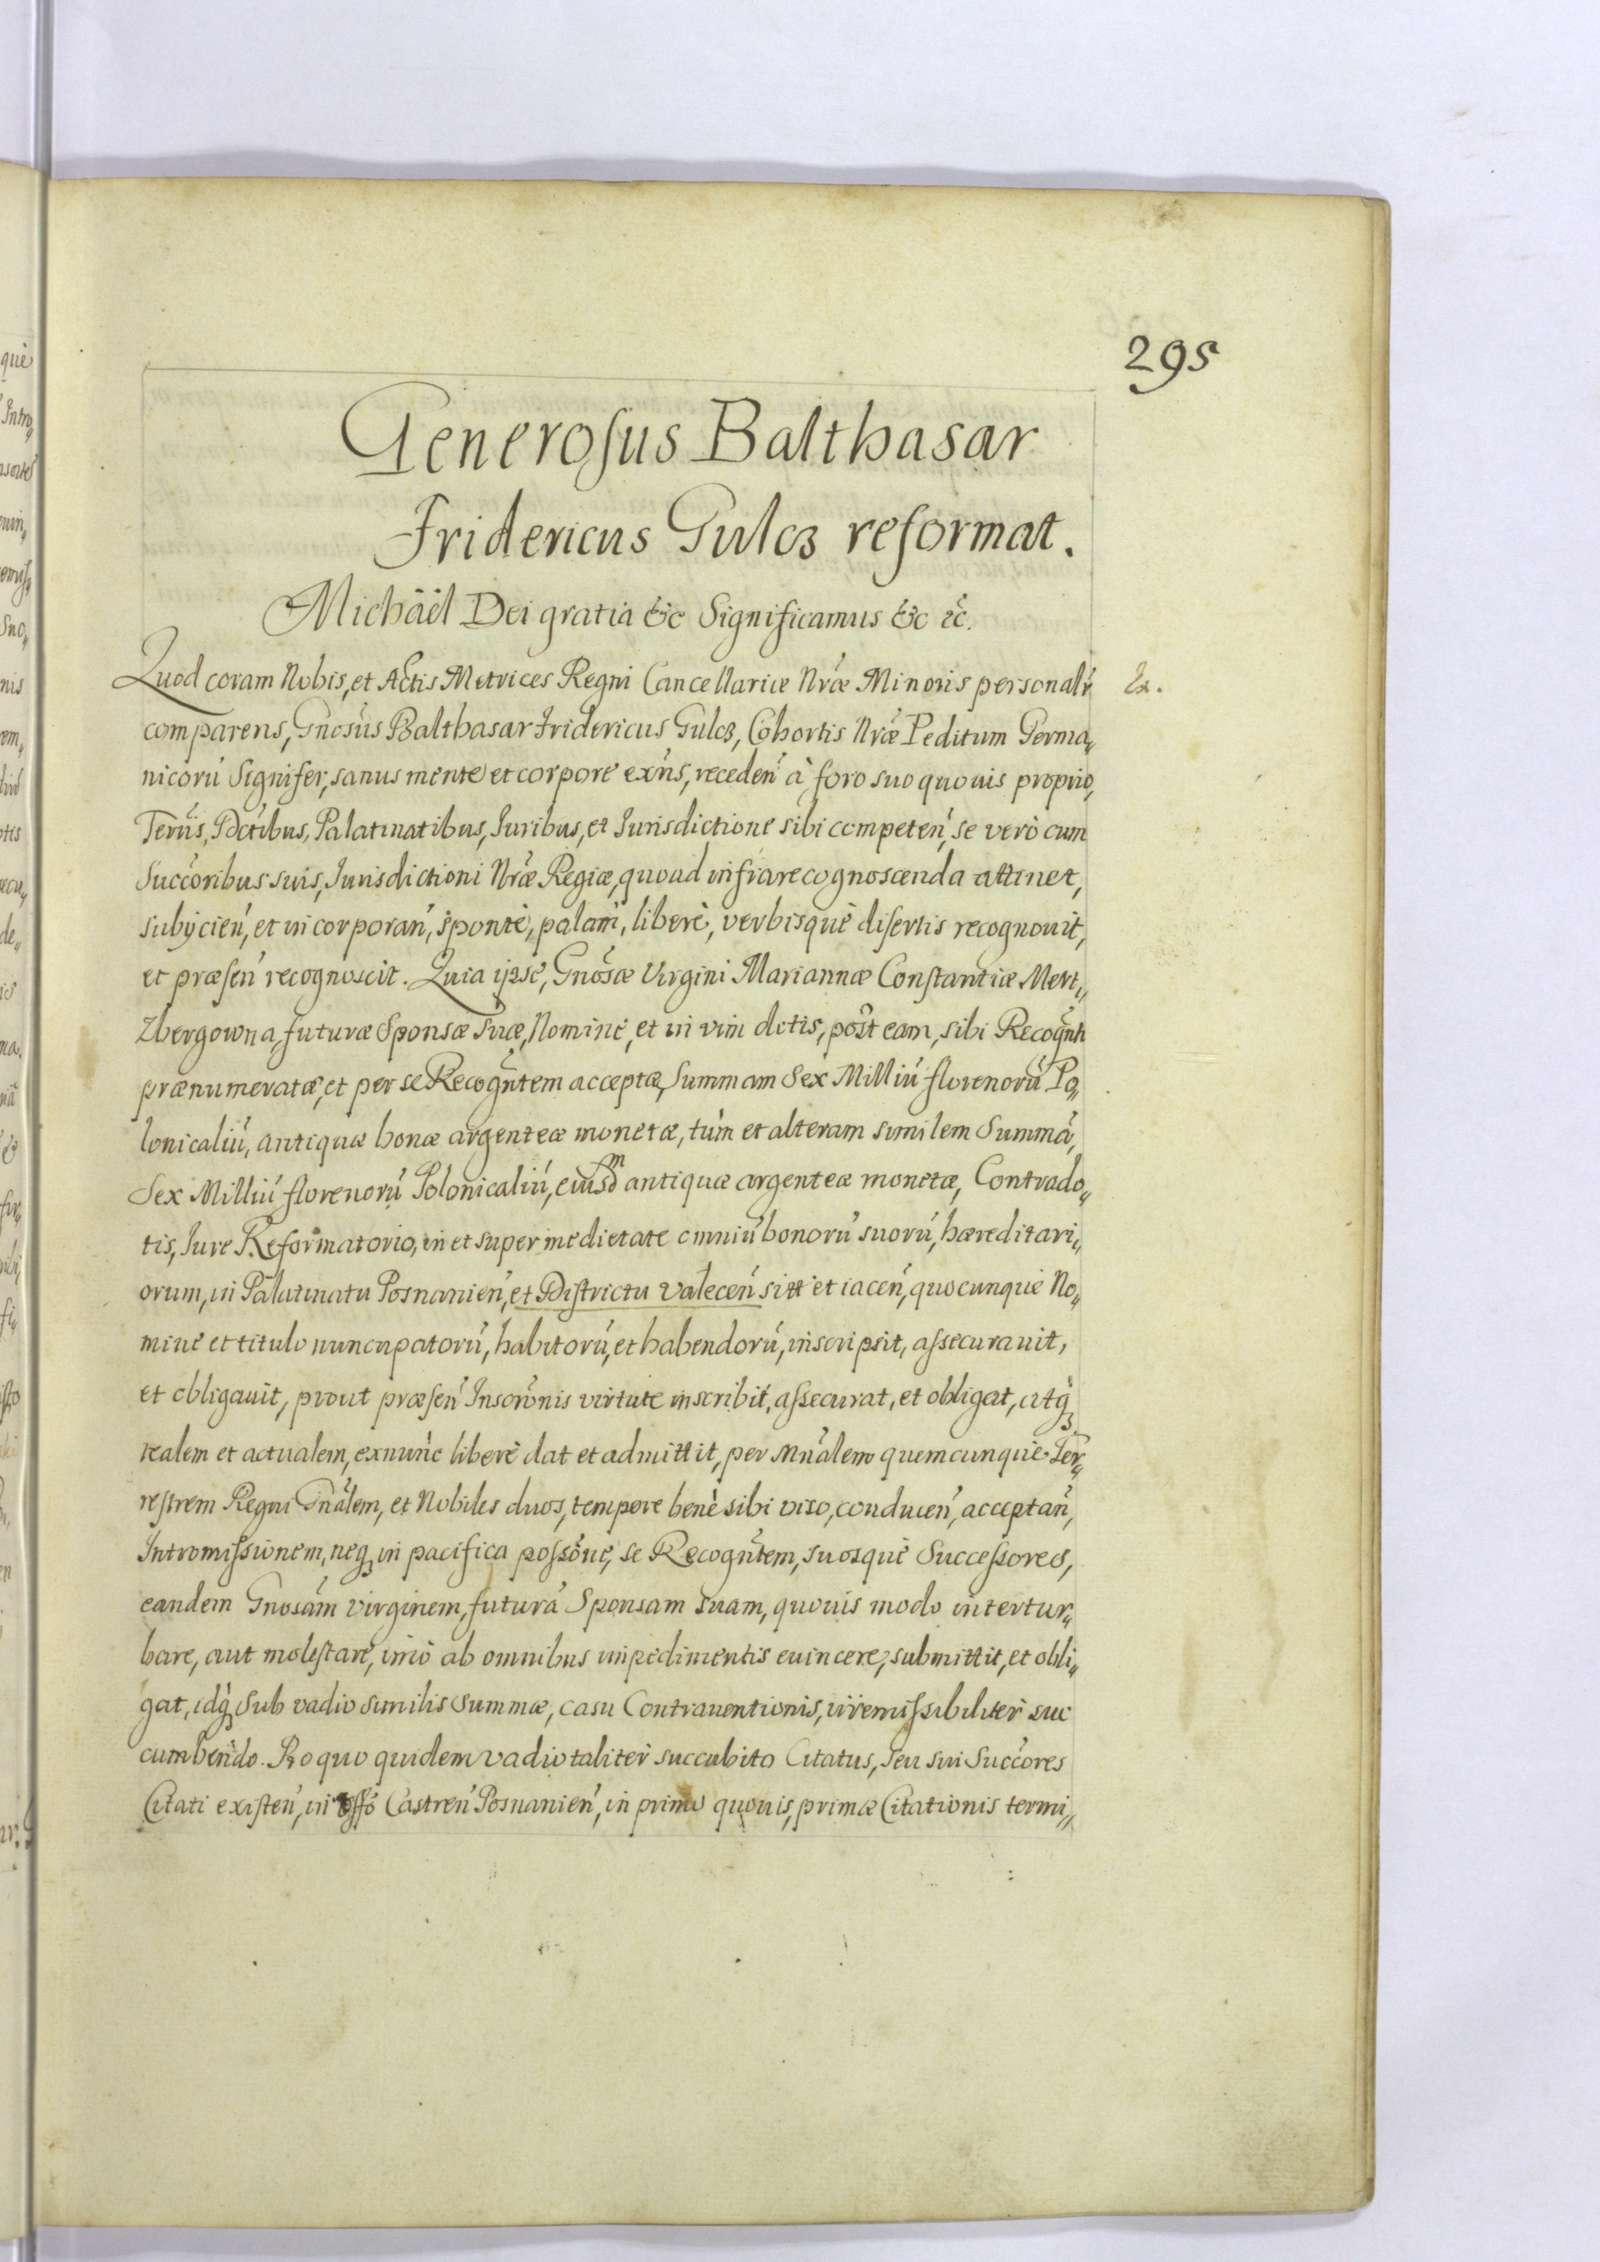 295
Generosus Balthasar
Fridericus Gulcz reformat.
Michäel Dei gratia &c Significamus &c &c.
Quod coram Nobis, et Actis Metrices Regni Cancellariæ Nr̃æ Minoris personalr̃
Ex.
comparens, Gnosus Balthasar Fridericus Gulcz, Cohortis Nr̃æ Peditum Germa„
nicorũ Signifer, sanus mente et corpore exñs, receden̄ à foro suo quouis proprio,
Terris, Dctibus, Palatinatibus, Juribus, et Jurisdictione sibi competen̄, se verò cum
Succoribus suis, Jurisdictioni Nr̃æ Regiæ, quoad infra recognoscenda attinet,
subijcien̄, et incorporan̄, spontè, palam, liberè, verbisquè disertis recognouit,
et præsen̄ recognoscit. Quia ipse, Gnosæ Virgini Mariannæ Constantiæ Mert„
zbergowna, futuræ Sponsæ suæ, Nomine, et in vim dotis, post eam, sibi Recognti
prænumeratæ, et per se Recogñtem acceptæ, Summam Sex Milliũ florenorũ Po„
lonicaliũ, antiquæ bonæ argenteæ monetæ, tùm et alteram similem Summã,
Sex Milliũ florenorũ Polonicaliũ, eiusdm antiquæ argenteæ monetæ, Contrado„
tis, Jure Reformatorio, in et super medietate omniũ bonorũ suorũ, hæreditari„
orum, in Palatinatu Posnanien̄, et Districtu Valecen̄ sitt et iacen̄, quocunquè No„
mine et titulo nuncupatorũ, habitorũ, et habendorũ, inscripsit, assecurauit,
et obligauit, prout præsen̄ Inscrõnis virtute inscribit, assecurat, et obligat, atq̃
realem et actualem, exnunc liberè dat et admittit, per Mnãlem quemcunquè Ter„
restrem Regni Gnãlem, et Nobiles duos, tempore benè sibi viso, conducen̄, acceptan̄,
Intromissionem, neq in pacifica possõne, se Recogñtem, suosquè Successores,
eandem Gnosam virginem, futurã Sponsam suam, quouis modo intertur„
bare, aut molestare, imò ab omnibus impedimentis euincere, submittit, et obli„
gat, idq̃ sub vadio similis Summæ, casu Contrauentionis, irremissibiliter suc
cumbendo. Pro quo quidem vadio taliter succubito Citatus, seu sui Succores
Citati existen̄, in Offõ Castren̄ Posnanien̄, in primo quouis, primæ Citationis termi„